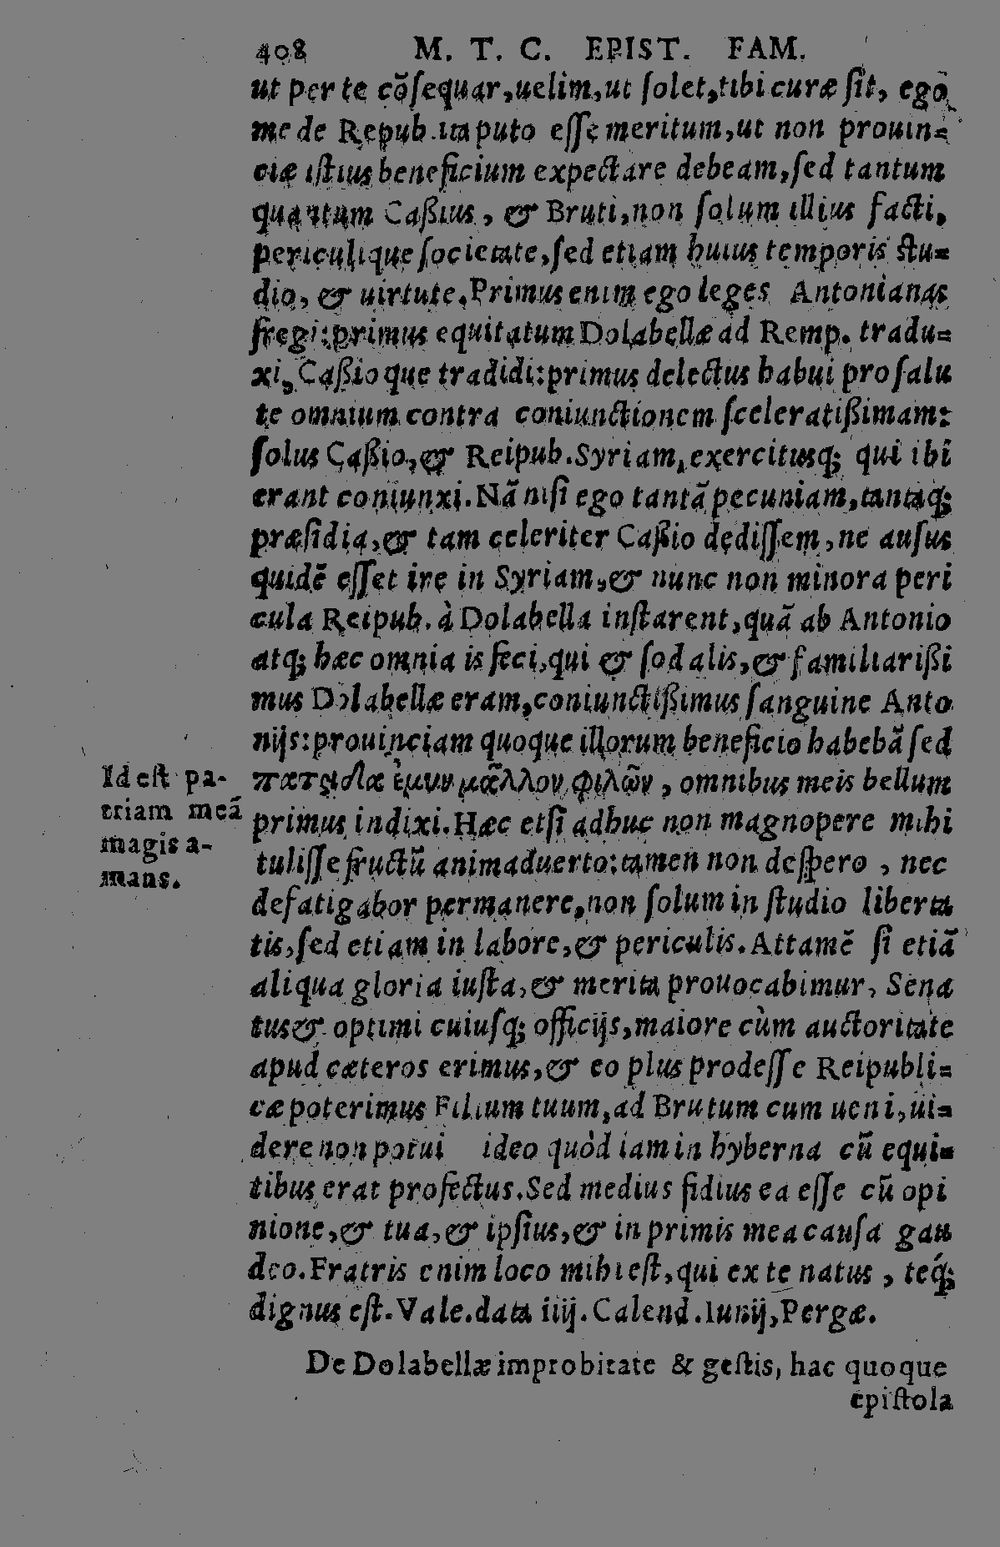 408 M. T. C. EPIST. FAM.
ut per te cõſequar, uelim, ut ſolet, tibi curæ ſit, ego
me de Repub. ita puto eſſe meritum, ut non prouin=
ciæ iſtius beneficium expectare debeam, ſed tantum
quantum Caßius, & Bruti, non ſolum illius facti,
periculique ſocietate, ſed etiam huius temporis ſtu=
dio, & uirtute. Primus enim ego leges Antonianas
fregi: primus equitatum Dolabellæ ad Remp. tradu=
xi, Caßio que tradidi: primus delectus habui pro ſalu
te omnium contra coniunctionem ſceleratißimam:
ſolus Caßio, & Reipub. Syriam, exercitusq; qui ibi
erant coniunxi. Nã niſi ego tantã pecuniam, tantaq;
præſidia, & tam celeriter Caßio dediſſem, ne auſus
quidẽ eſſet ire in Syriam, & nunc non minora peri
cula Reipub. à Dolabella inſtarent, quã ab Antonio
atq; hæc omnia is feci, qui & ſodalis, & familiarißi
mus Dolabellæ eram, coniunctißimus ſanguine Anto
nijs: prouinciam quoque illorum beneficio habebã ſed
πατρίδα ἐμὴν μᾶλλον φιλῶν, omnibus meis bellum
primus indixi. Hæc etſi adhuc non magnopere mihi
tuliſſe fructũ animaduerto: tamen non deſpero, nec
defatigabor permanere, non ſolum in ſtudio liberta
tis, ſed etiam in labore, & periculis. Attamẽ ſi etiã
aliqua gloria iuſta, & merita prouocabimur, Sena
tus & optimi cuiuſq; officijs, maiore cùm auctoritate
apud cæteros erimus, & eo plus prodeſſe Reipubli=
cæ poterimus Filium tuum, ad Brutum cum ueni, ui=
dere non potui ideo quòd iam in hyberna cũ equi=
tibus erat profectus. Sed medius fidius ea eſſe cũ opi
nione, & tua, & ipſius, & in primis mea cauſa gau
deo. Fratris enim loco mihi eſt, qui ex te natus, teq́;
dignus eſt. Vale. data iiij. Calend. Iunij, Pergæ.
Id eſt pa-
triam meã
magis a-
mans.
De Dolabellæ improbitate & geſtis, hac quoque
epiſtola